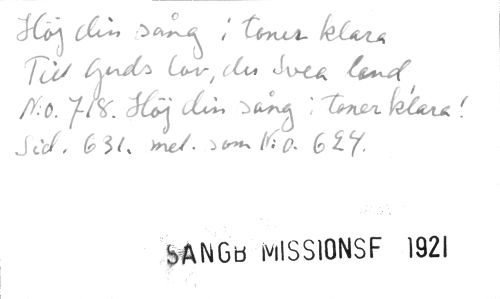 Höj din sång i toner klara
Till Guds lov, du Svea land,
N:o. 718. Höj din sång i toner klara!
Sid. 631. mel. som N:o. 624.
SANGB MISSIONSF 1921